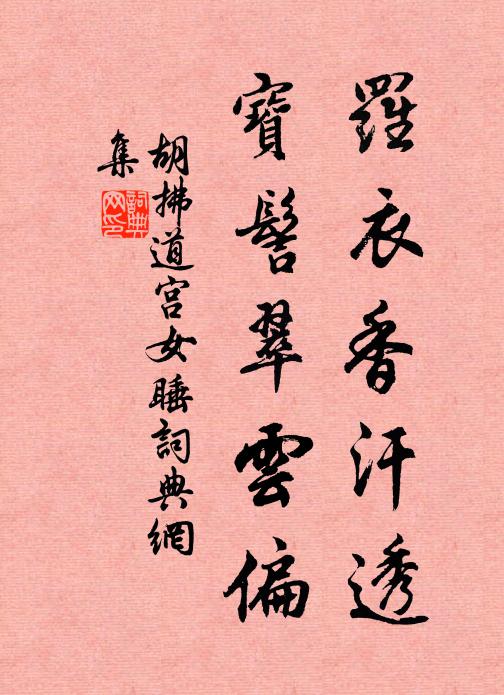 羅衣香汗透
寶髻翠雲偏
胡拂道宮女睡詞典網
集
詞典
网印